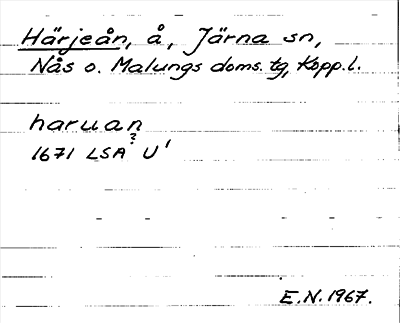 Härjeån, å, Järna sn,
Nås o. Malungs doms. tg, Kopp.l.
haruan
?
1671 LSA U'
E.N. 1967.